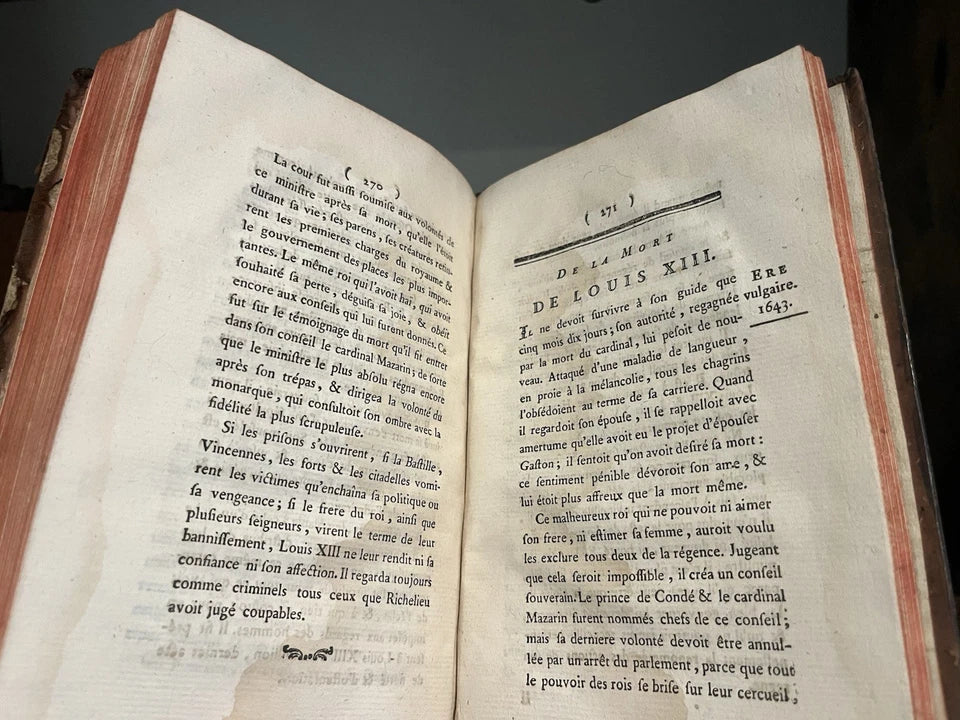 ( 270 )
La cour fut auſſi ſoumiſe aux volontés de
ce miniſtre après ſa mort, qu'elle l'étoit
durant ſa vie; ſes parens, ſes créatures retin-
rent les premieres charges du royaume &
le gouvernement des places les plus impor-
tantes. Le même roi qui l'avoit haï, qui avoit
ſouhaité ſa perte, déguiſa ſa joie, & obéit
encore aux conſeils qui lui furent donnés. Ce
fut ſur le témoignage du mort qu'il fit entrer
dans ſon conſeil le cardinal Mazarin; de ſorte
que le miniſtre le plus abſolu régna encore
après ſon trépas, & dirigea la volonté du
monarque, qui conſultoit ſon ombre avec la
fidélité la plus ſcrupuleuſe.
Si les priſons s'ouvrirent, ſi la Baſtille,
Vincennes, les forts & les citadelles vomi-
rent les victimes qu'enchaîna ſa politique ou
ſa vengeance; ſi le frere du roi, ainſi que
pluſieurs ſeigneurs, virent le terme de leur
banniſſement, Louis XIII ne leur rendit ni ſa
confiance ni ſon affection. Il regarda toujours
comme criminels tous ceux que Richelieu
avoit jugé coupables.
( 271 )
DE LA MORT
DE LOUIS XIII.
IL ne devoit ſurvivre à ſon guide que
cinq mois dix jours; ſon autorité, regagnée
par la mort du cardinal, lui peſoit de nou-
veau. Attaqué d'une maladie de langueur,
en proie à la mélancolie, tous les chagrins
l'obſédoient au terme de ſa carriere. Quand
il regardoit ſon épouſe, il ſe rappelloit avec
amertume qu'elle avoit eu le projet d'épouſer
Gaſton; il ſentoit qu'on avoit deſiré ſa mort :
ce ſentiment pénible dévoroit ſon ame, &
lui étoit plus affreux que la mort même.
Ce malheureux roi qui ne pouvoit ni aimer
ſon frere, ni eſtimer ſa femme, auroit voulu
les exclure tous deux de la régence. Jugeant
que cela ſeroit impoſſible, il créa un conſeil
ſouverain. Le prince de Condé & le cardinal
Mazarin furent nommés chefs de ce conſeil;
mais ſa derniere volonté devoit être annul-
lée par un arrêt du parlement, parce que tout
le pouvoir des rois ſe briſe ſur leur cercueil;
ERE
vulgaire.
1643.